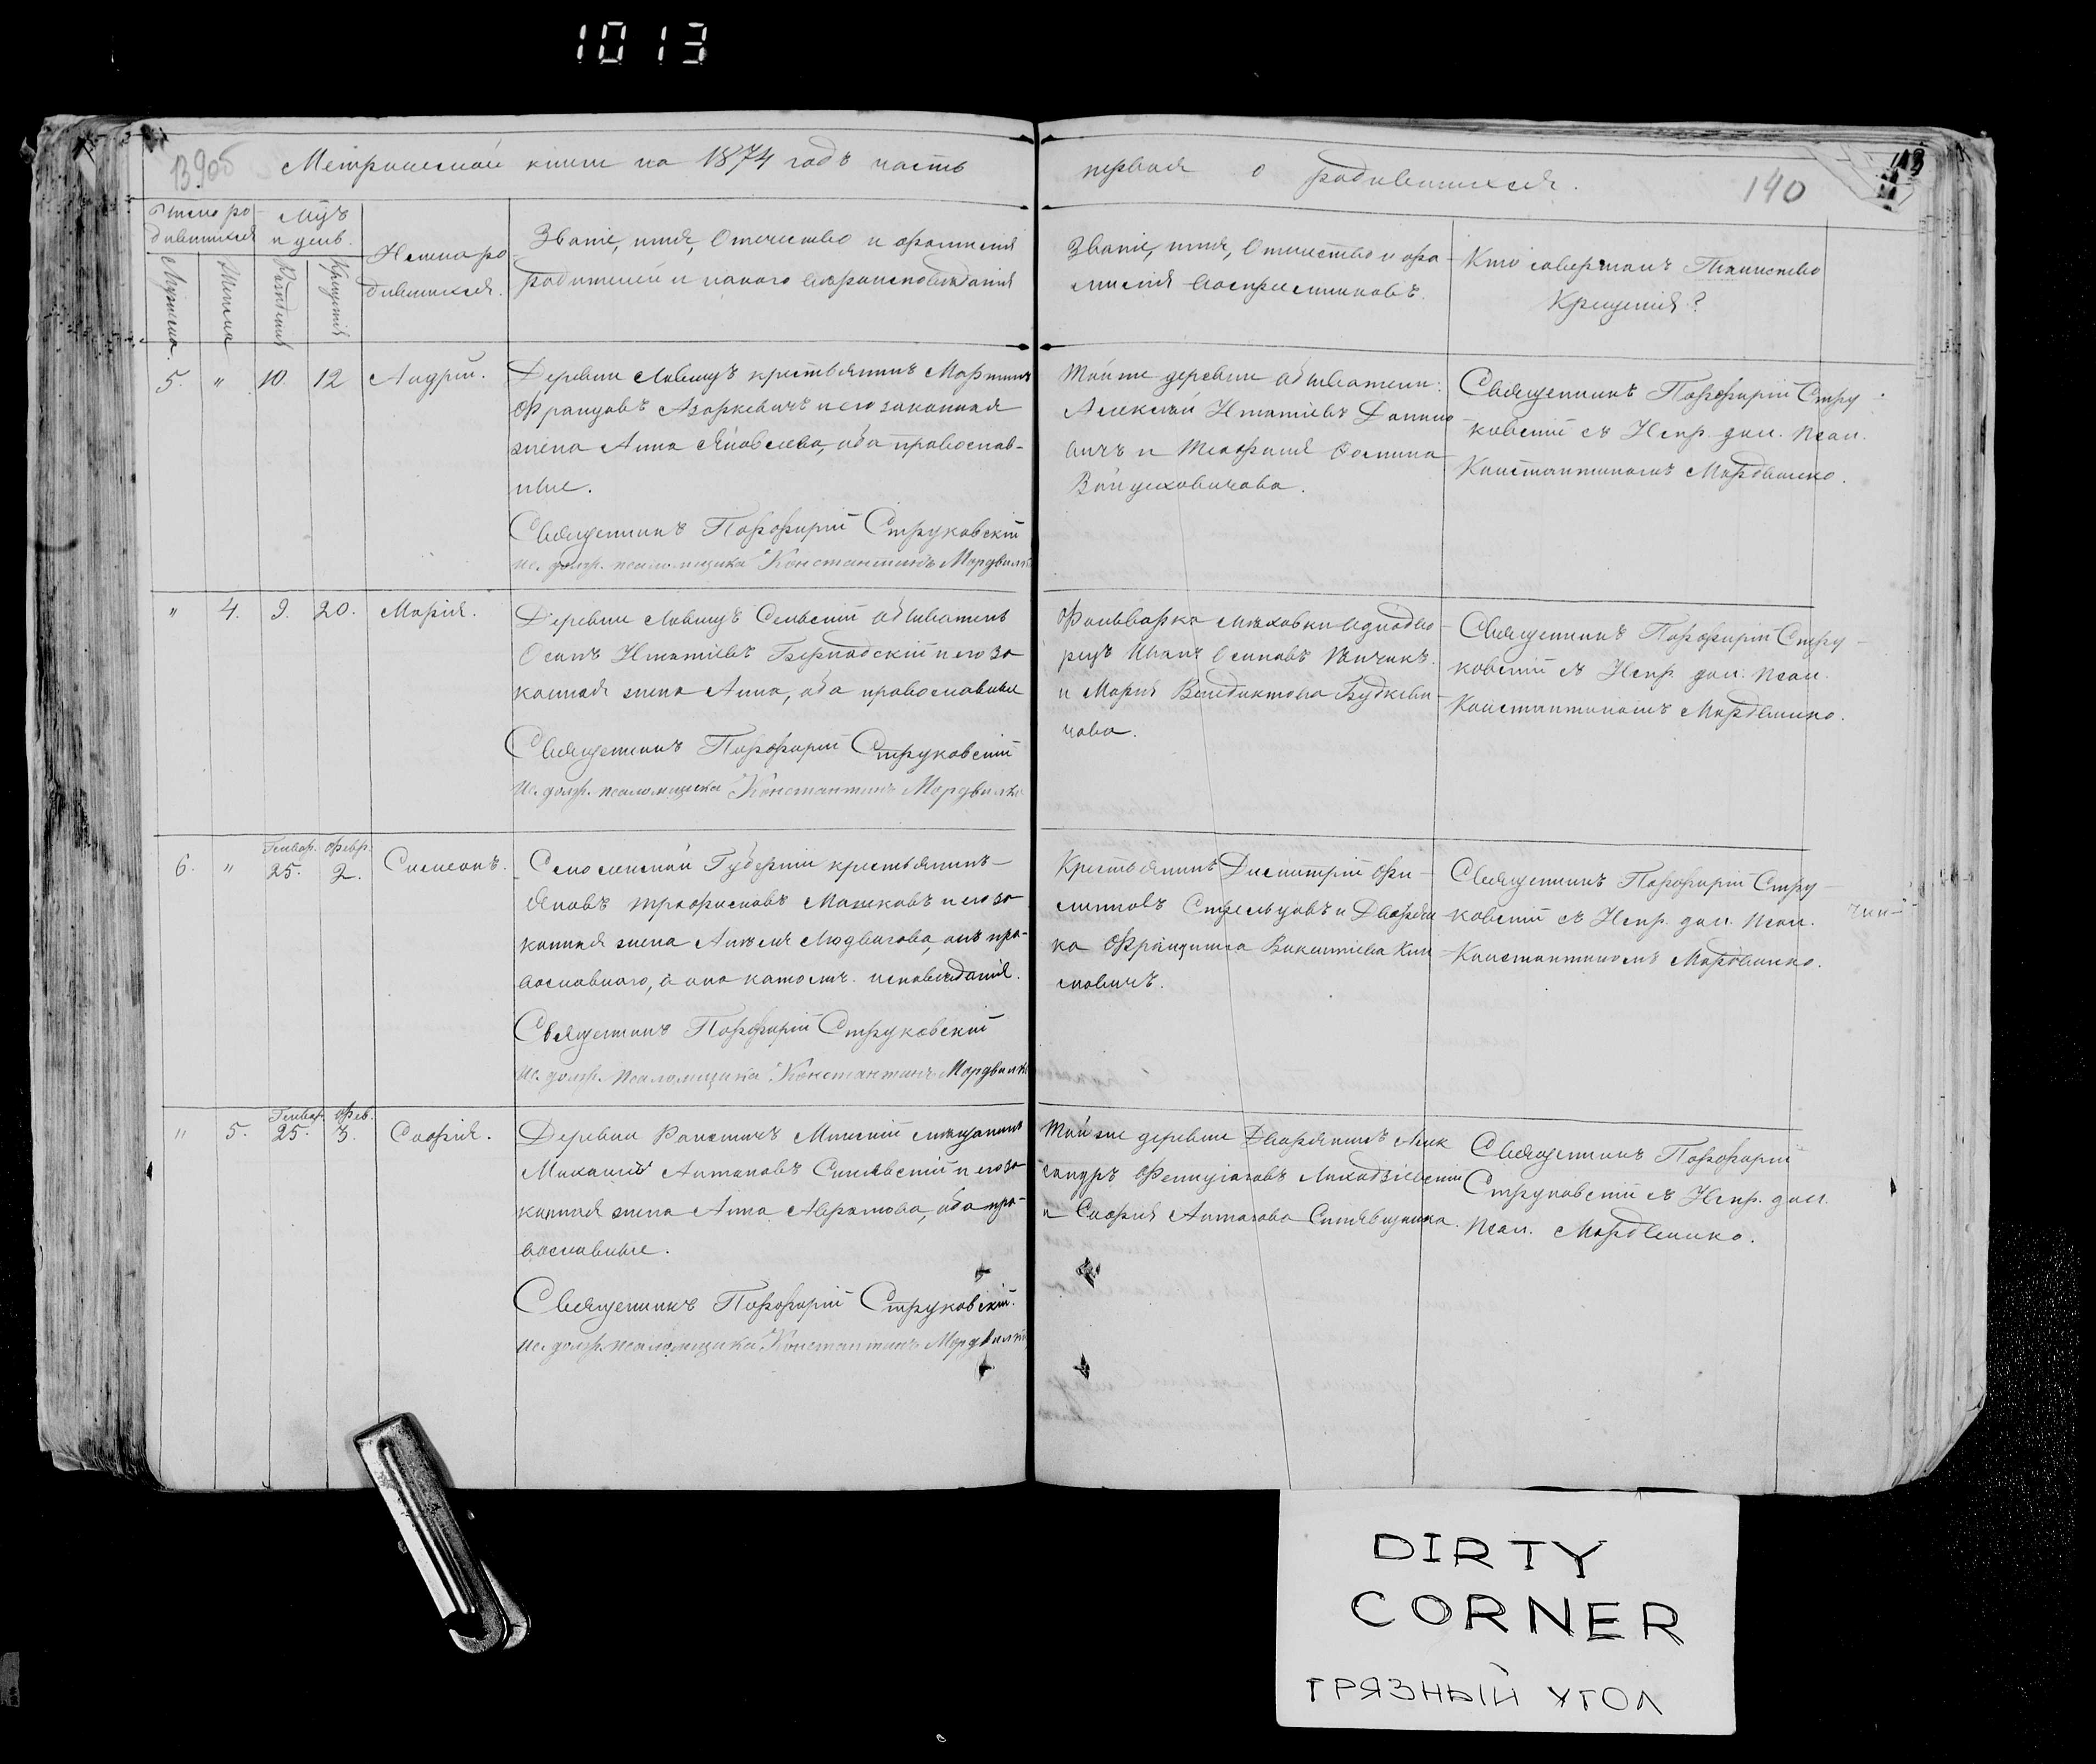 1013
139об
Метрической книги на 1874 годъ часть
первая о родившихся.
140
Число ро-
дившихся
Мужеска.
Женска
Мѣс.
и день.
Рожденія
Крещенія
Имена ро-
дившихся.
Званіе, имя, отчество и фамилія
родителей и какого вѣроисповѣданія
Званіе, имя, отчество и фа-
милія воспріемниковъ.
Кто совершалъ Таинство
Крещенія?
5. " 10. 12 Андрей.
Деревни крестьянинъ Мартинъ
Францовъ Азаркевичъ и его законная
жена Анна Яковлева, оба православ-
ные.
Священникъ Порфирій Струковскій
Ис. долж. псаломщика Константинъ Мордвилко
Той же деревни обыватели:
Алексѣй Игнатіевъ
и Теофилія Фомина
Войцеховичова.
Священникъ Порфирій Стру-
ковскій съ Испр. дол. псал.
Константиномъ Мордвилко.
" 4. 9. 20. Марія.
Деревни Сельскій обыватель
Осипъ Игнатіевъ Бернадскій и его за-
конная жена Анна, оба православные
Священникъ Порфирій Струковскій
Ис. долж. псаломщика Константинъ Мордвилко
Фольварка однодво-
рецъ Иванъ Осиповъ
и Марія Венедиктова Будкеви-
чова.
Священникъ Порфирій Стру-
ковскій съ Испр. дол. псал.
Константиномъ Мордвилко.
6. " Генвар. 25. Февр. 2. Симеонъ.
Смоленской Губерніи крестьянинъ
Яковъ Трофимовъ и его за-
конная жена Анжеля Людвигова, онъ пра-
вославнаго, а она католич. исповѣданія.
Священникъ Порфирій Струковскій
Ис. долж. псаломщика Константинъ Мордвилко
Крестьянинъ Димитрій Фи-
липповъ Стрельцовъ и Дворян-
ка Францишка Викентіева Кли-
мовичъ.
Священникъ Порфирій Стру-
ковскій съ Испр. дол. псал.
Константиномъ Мордвилко.
" 5. Генвар. 25. Фев. 3. Софія.
Деревни Минскій мѣщанинъ
Михаилъ Антоновъ Синявскій и его за-
конная жена Анна Абрамова, оба пра-
вославные.
Священникъ Порфирій Струковскій.
Ис. долж. псаломщика Константинъ Мордвилко
Той же деревни Дворянинъ Алек-
сандръ
и Софія Антонова
Священникъ Порфирій
Струковскій съ Испр. дол.
псал. Мордвилко.
DIRTY
CORNER
ГРЯЗНЫЙ УГОЛ